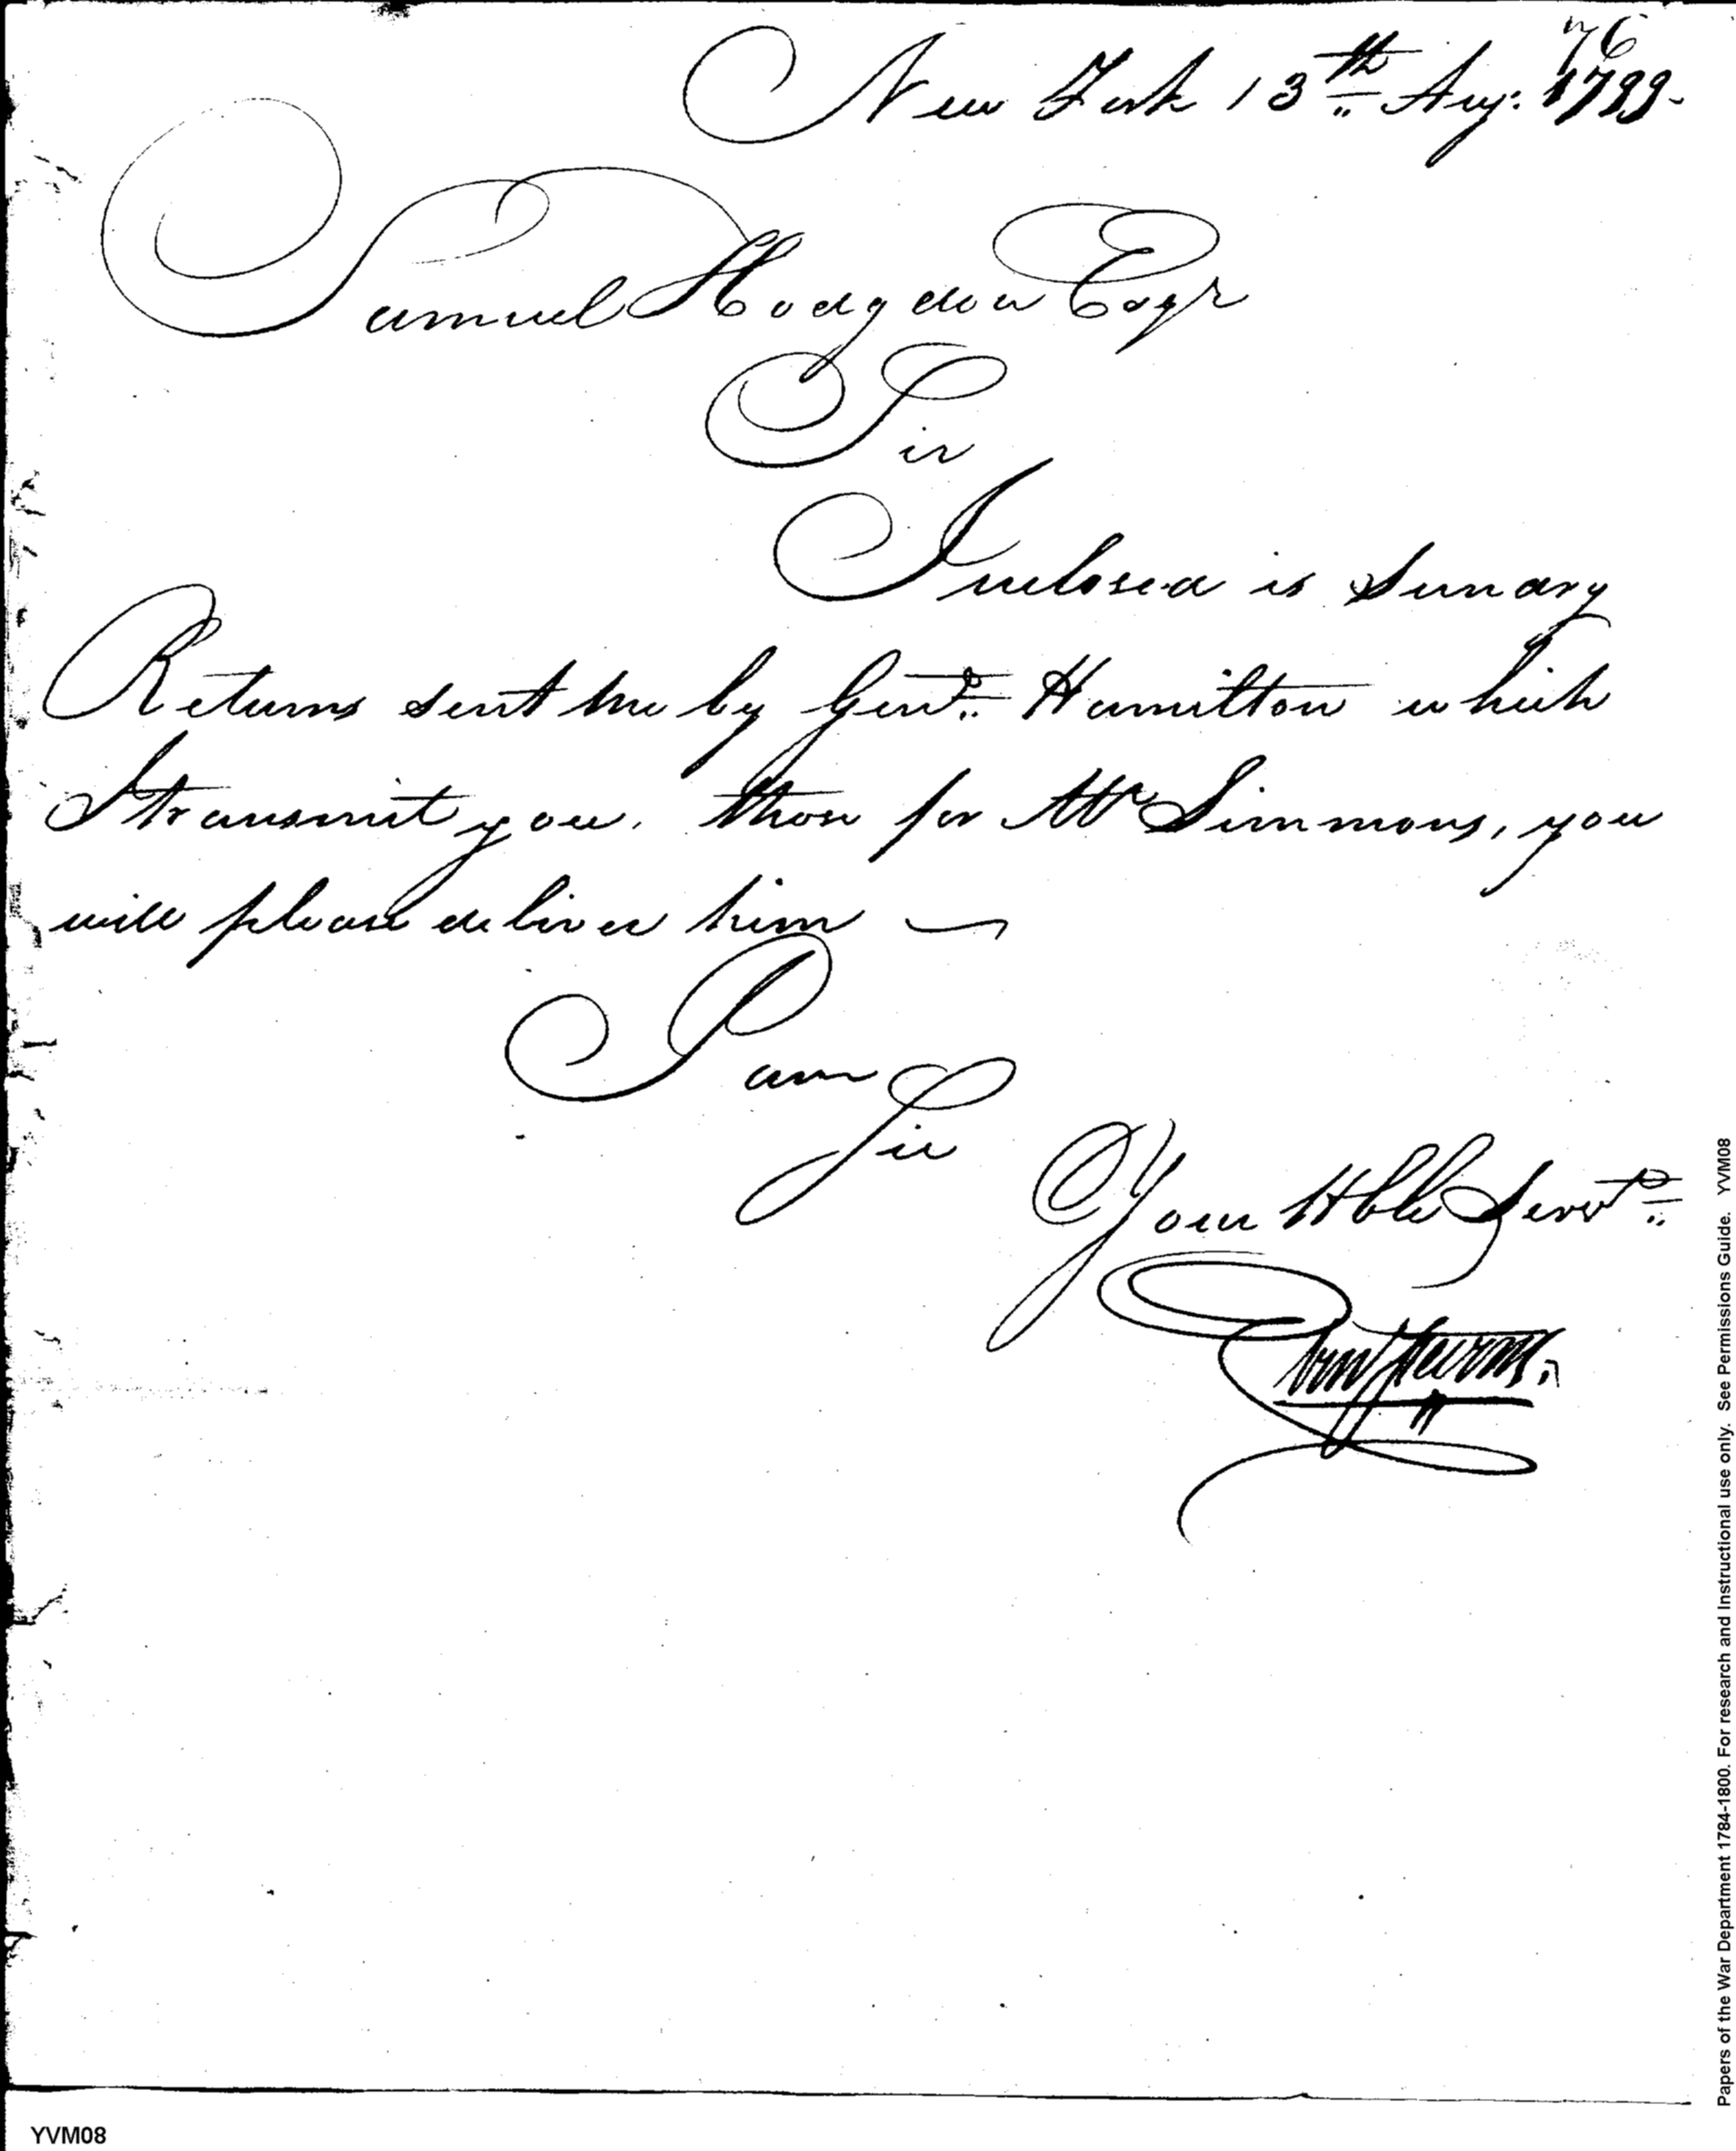 76
New York 13th Aug: 1799.
Samuel Hodgdon Esqr
Sir
Inclosed is Sundry
Returns sent me by Genl. Hamilton which
I transmit you. those for Mr Simmons, you
will please deliver him
I am
Sir
Your Hble Servt.
Papers of the War Department 1784-1800. For research and Instructional use only. See Permissions Guide. YVM08
YVM08